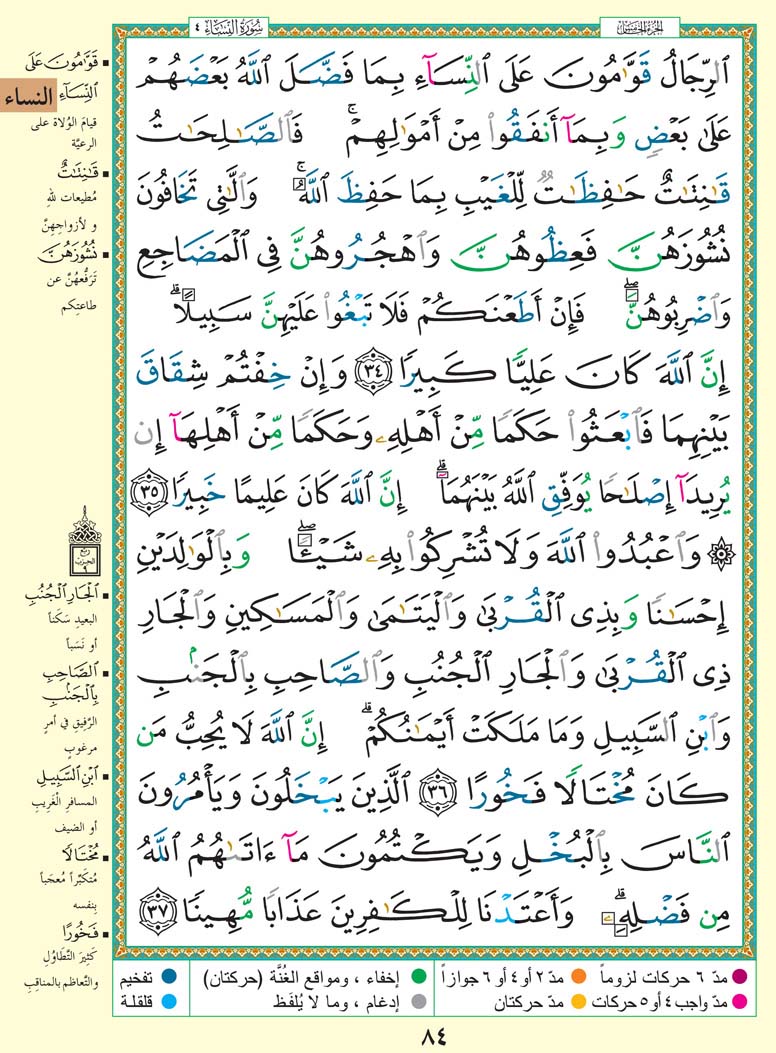 سُورَةُ النِّسَاءِ ٤
الجُزءُ الخَامِسُ
الرِّجَالُ قَوَّٰمُونَ عَلَى النِّسَآءِ بِمَا فَضَّلَ اللَّهُ بَعْضَهُمْ
عَلَىٰ بَعْضٍ وَبِمَآ أَنفَقُوا۟ مِنْ أَمْوَٰلِهِمْ ۚ فَٱلصَّٰلِحَٰتُ
قَٰنِتَٰتٌ حَٰفِظَٰتٌ لِّلْغَيْبِ بِمَا حَفِظَ ٱللَّهُ ۚ وَٱلَّٰتِى تَخَافُونَ
نُشُوزَهُنَّ فَعِظُوهُنَّ وَٱهْجُرُوهُنَّ فِى ٱلْمَضَاجِعِ
وَٱضْرِبُوهُنَّ ۖ فَإِنْ أَطَعْنَكُمْ فَلَا تَبْغُوا۟ عَلَيْهِنَّ سَبِيلًا ۗ
إِنَّ ٱللَّهَ كَانَ عَلِيًّا كَبِيرًا ٣٤ وَإِنْ خِفْتُمْ شِقَاقَ
بَيْنِهِمَا فَٱبْعَثُوا۟ حَكَمًا مِّنْ أَهْلِهِۦ وَحَكَمًا مِّنْ أَهْلِهَآ إِن
يُرِيدَآ إِصْلَٰحًا يُوَفِّقِ ٱللَّهُ بَيْنَهُمَآ ۗ إِنَّ ٱللَّهَ كَانَ عَلِيمًا خَبِيرًا ٣٥
۞ وَٱعْبُدُوا۟ ٱللَّهَ وَلَا تُشْرِكُوا۟ بِهِۦ شَيْـًٔا ۖ وَبِٱلْوَٰلِدَيْنِ
إِحْسَٰنًا وَبِذِى ٱلْقُرْبَىٰ وَٱلْيَتَٰمَىٰ وَٱلْمَسَٰكِينِ وَٱلْجَارِ
ذِى ٱلْقُرْبَىٰ وَٱلْجَارِ ٱلْجُنُبِ وَٱلصَّاحِبِ بِٱلْجَنۢبِ
وَٱبْنِ ٱلسَّبِيلِ وَمَا مَلَكَتْ أَيْمَٰنُكُمْ ۗ إِنَّ ٱللَّهَ لَا يُحِبُّ مَن
كَانَ مُخْتَالًا فَخُورًا ٣٦ ٱلَّذِينَ يَبْخَلُونَ وَيَأْمُرُونَ
ٱلنَّاسَ بِٱلْبُخْلِ وَيَكْتُمُونَ مَآ ءَاتَىٰهُمُ ٱللَّهُ
مِن فَضْلِهِۦ ۗ وَأَعْتَدْنَا لِلْكَٰفِرِينَ عَذَابًا مُّهِينًا ٣٧
▪ قَوَّٰمُونَ عَلَى
ٱلنِّسَآءِ
النساء
قيامَ الوُلاة على
الرعيَّة
▪ قَٰنِتَٰتٌ
مُطيعات للهِ
و لأزواجِهِنَّ
▪ نُشُوزَهُنَّ
تَرَفُّعَهُنَّ عن
طاعتِكم
ربع
الحزب
٩
▪ ٱلْجَارِ ٱلْجُنُبِ
البعيدِ سَكَناً
أو نَسَباً
▪ ٱلصَّاحِبِ
بِٱلْجَنۢبِ
الرَّفيقِ في أمرٍ
مرغوبٍ
▪ ٱبْنِ ٱلسَّبِيلِ
المسافرِ الغَريبِ
أو الضيف
▪ مُخْتَالًا
مُتكَبِّراً مُعجَباً
بِنفسه
▪ فَخُورًا
كَثيرَ التَّطَاوُلِ
والتَّعاظم بالمناقِبِ
مدّ ٦ حركات لزوماً
مدّ ٢ أو ٤ أو ٦ جوازاً
إخفاء ، ومواقع الغُنَّة (حركتان)
تفخيم
مدّ واجب ٤ أو ٥ حركات
مدّ حركتان
إدغام ، وما لا يُلفَظ
قلقلة
٨٤